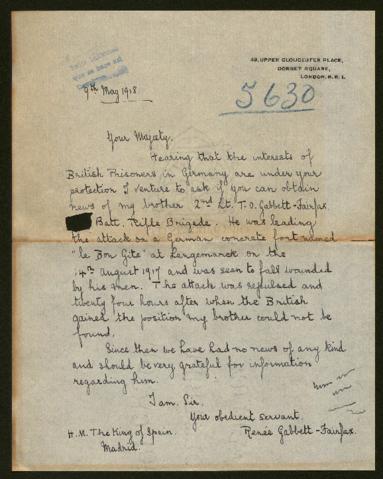 49, UPPER GLOUCESTER PLACE,
DORSET SQUARE,
LONDON, N.W.1.
9th May 1918
5630
Your Majesty,
Hearing that the interests of
British Prisoners in Germany are under your
protection I venture to ask if you can obtain
news of my brother 2nd Lt. T. O. Gabbett-Fairfax
Batt. Rifle Brigade. He was leading
the attack on a German concrete fort named
"le Bon Gite" at Langemarck on the
14th August 1917 and was seen to fall wounded
by his men. The attack was repulsed and
twenty four hours after when the British
gained the position my brother could not be
found.
Since then we have had no news of any kind
and should be very grateful for information
regarding him.
I am. Sir.
Your obedient servant.
H.M. The King of Spain. Renée Gabbett-Fairfax.
Madrid.